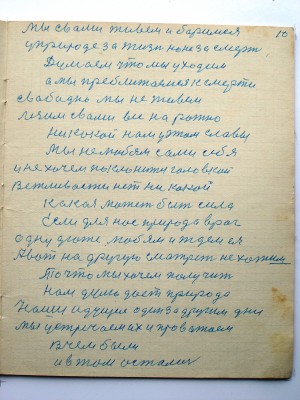 10
Мы свами живем и баримся
уприроде за жизн коне за смерт
Думаем что мы уходим
а мы преближаемся к смерти
свабодно мы не живем
лезим свами все на рожно
никокой нам у этом славы
Мы нелюбям сами себя
и не хочем поклонити головкой
Вежливасти нет ни какой
Какая может быт сила
Если для нас природа враг
одну даже любям и ждем ея
Авот на другую сматрит не хочим
То что мы хочем получит
нам дает природа
Наши идущие один за другим дни
мы устречаем их и проважаем
Вчем были
ив том остались